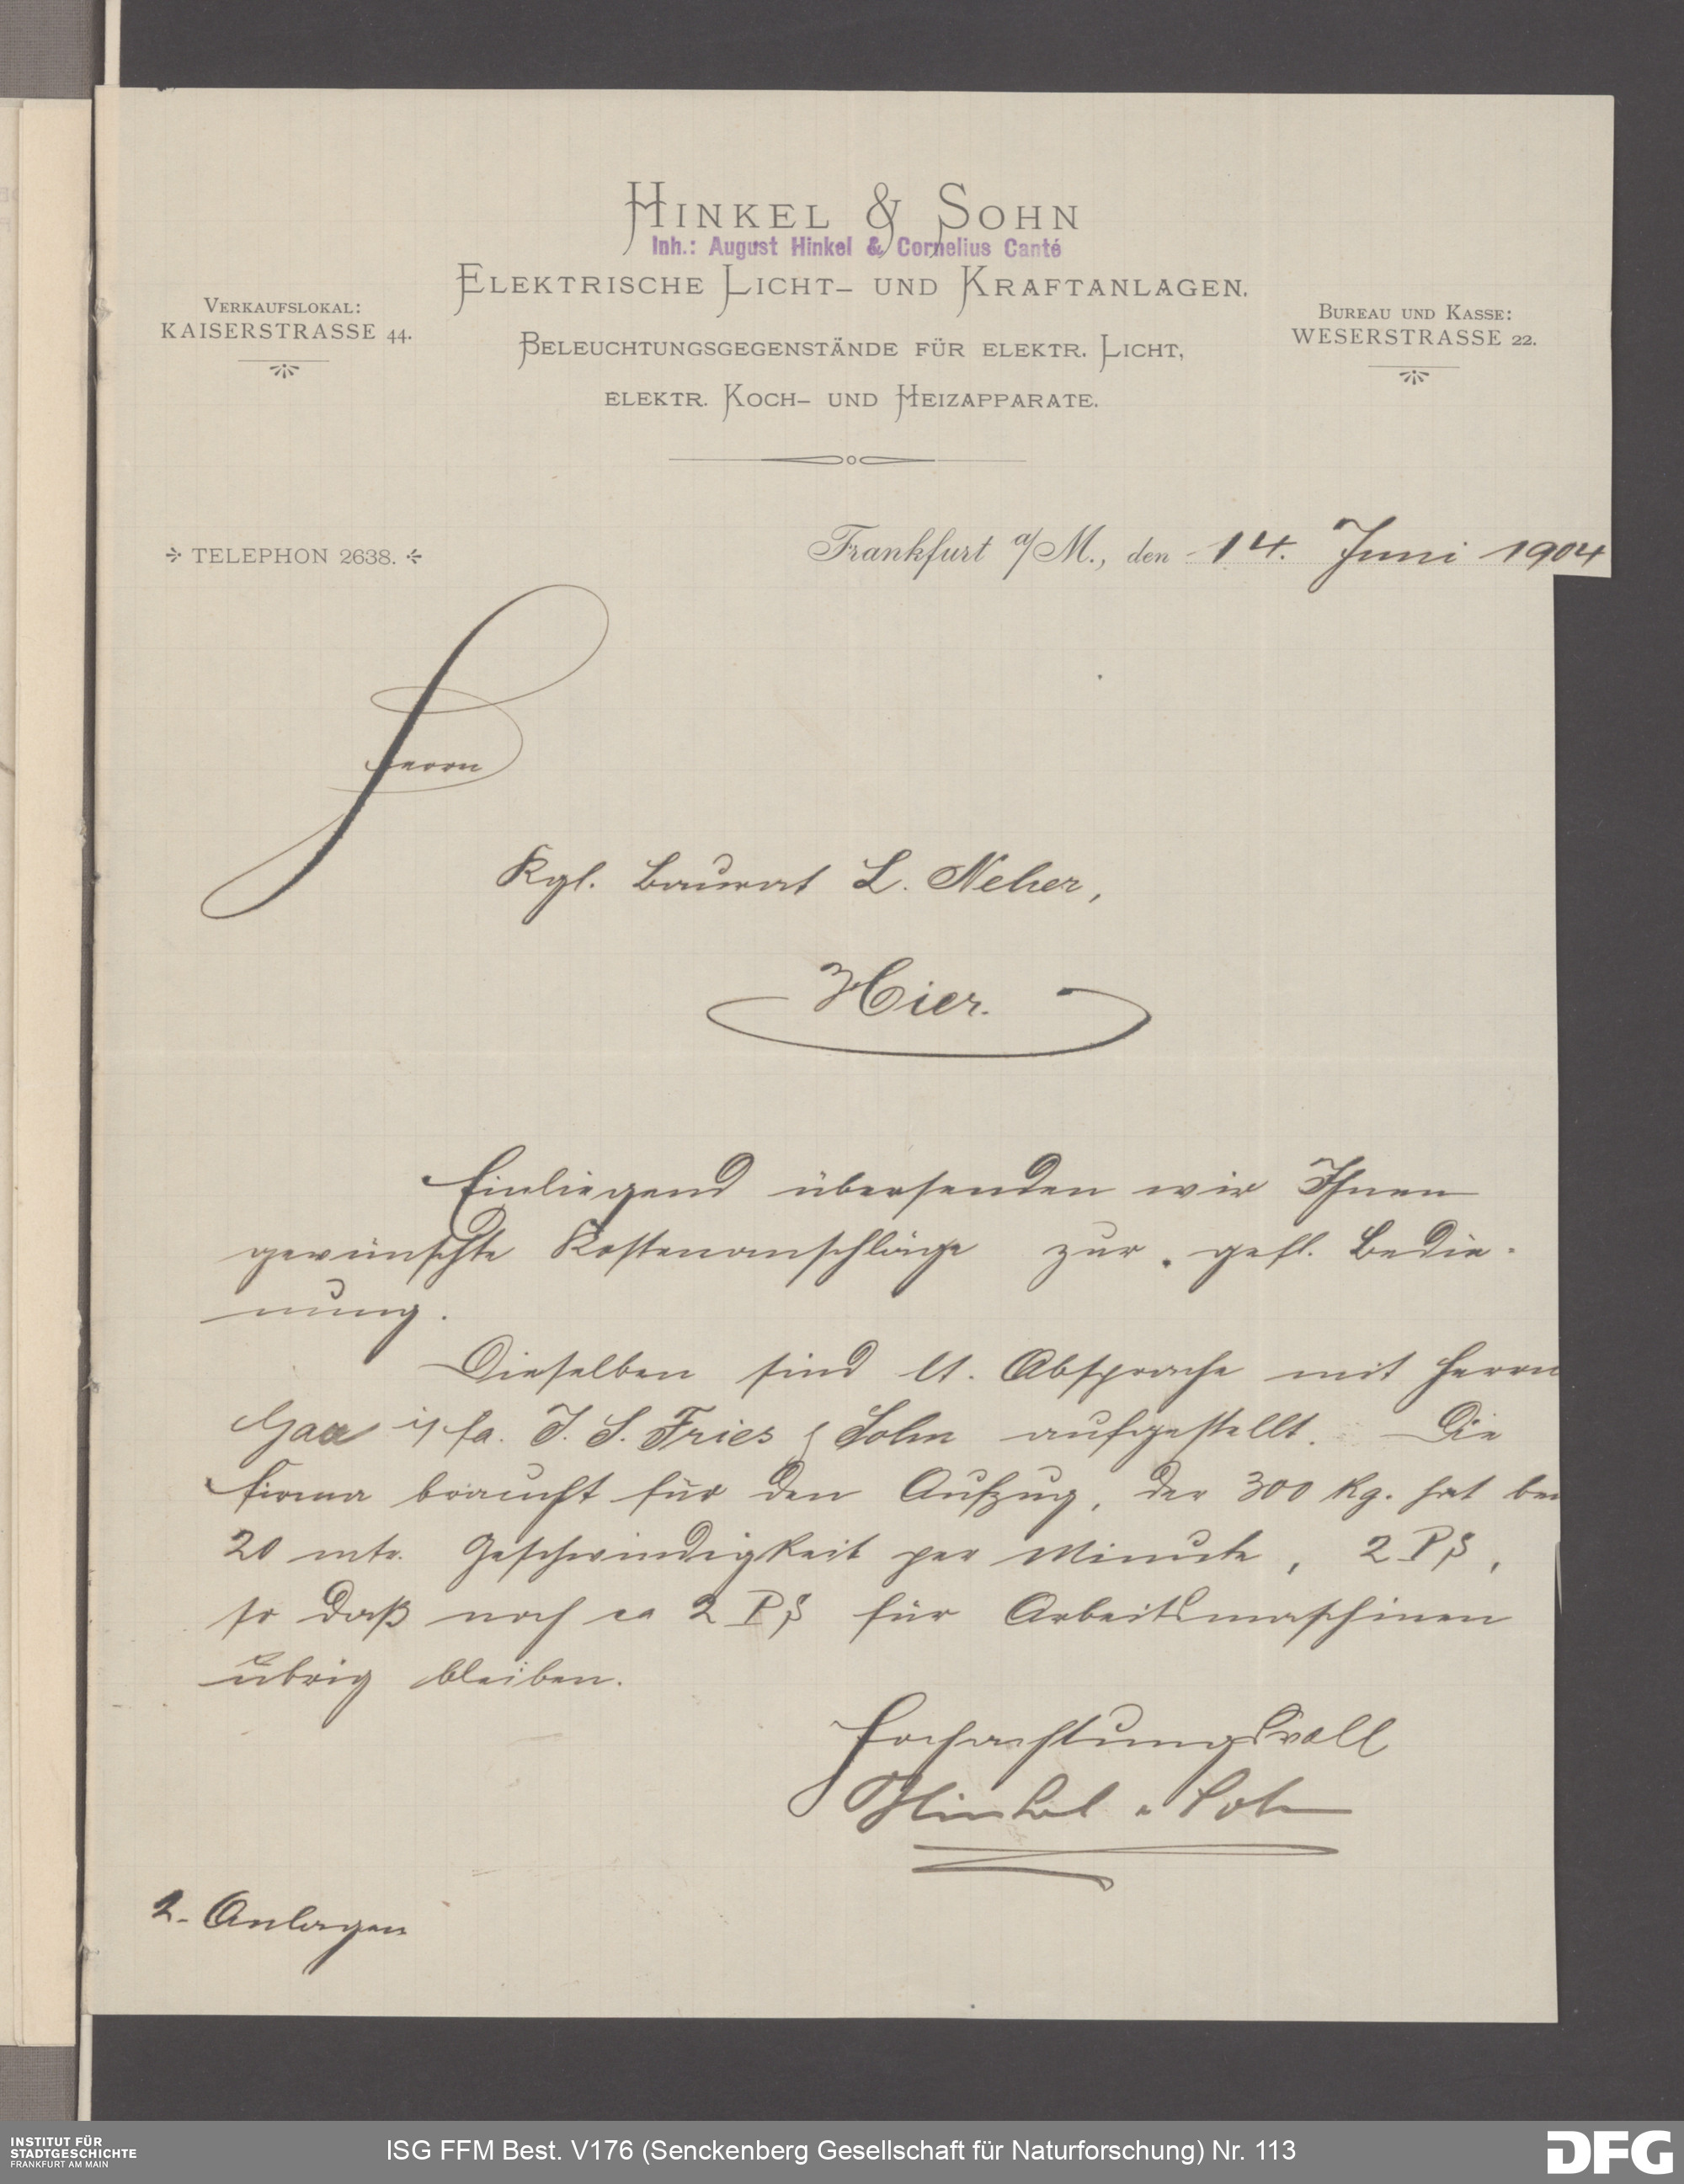 HINKEL & SOHN
Inh.: August Hinkel & Cornelius Canté
ELEKTRISCHE LICHT- UND KRAFTANLAGEN.
VERKAUFSLOKAL:
KAISERSTRASSE 44.
BUREAU UND KASSE:
WESERSTRASSE 22.
BELEUCHTUNGSGEGENSTÄNDE FÜR ELEKTR. LICHT,
ELEKTR. KOCH- UND HEIZAPPARATE.
TELEPHON 2638.
Frankfurt a/M., den 14. Juni 1904
Herrn
Kgl. Baurat L. Neher,
Hier.
Einliegend übersenden wir Ihnen
gewünschte Kostenanschläge zur gefl. Bedie-
nung.
Dieselben sind lt. Absprache mit Herrn
i/ fa. J. S. Fries & Sohn aufgestellt. Die
Firma braucht für den Aufzug, der 300 Kg. hat bei
20 mtr. Geschwindigkeit per Minute, 2 PS,
so daß noch ca 2 PS für Arbeitsmaschinen
übrig bleiben.
Hochachtungsvoll
Hinkel & Sohn
2. Anlagen
INSTITUT FÜR
STADTGESCHICHTE
FRANKFURT AM MAIN
ISG FFM Best. V176 (Senckenberg Gesellschaft für Naturforschung) Nr. 113
DFG